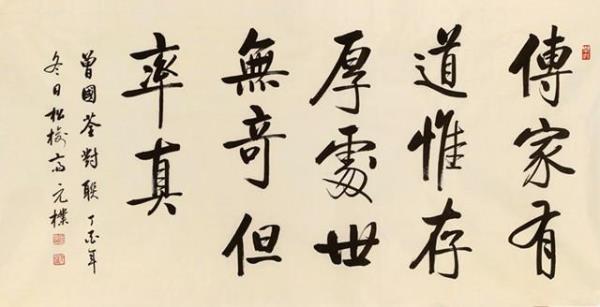 傳家有
道惟存
厚處世
無竒但
率真
曾國荃對聯 丁酉年
冬日松 元樸